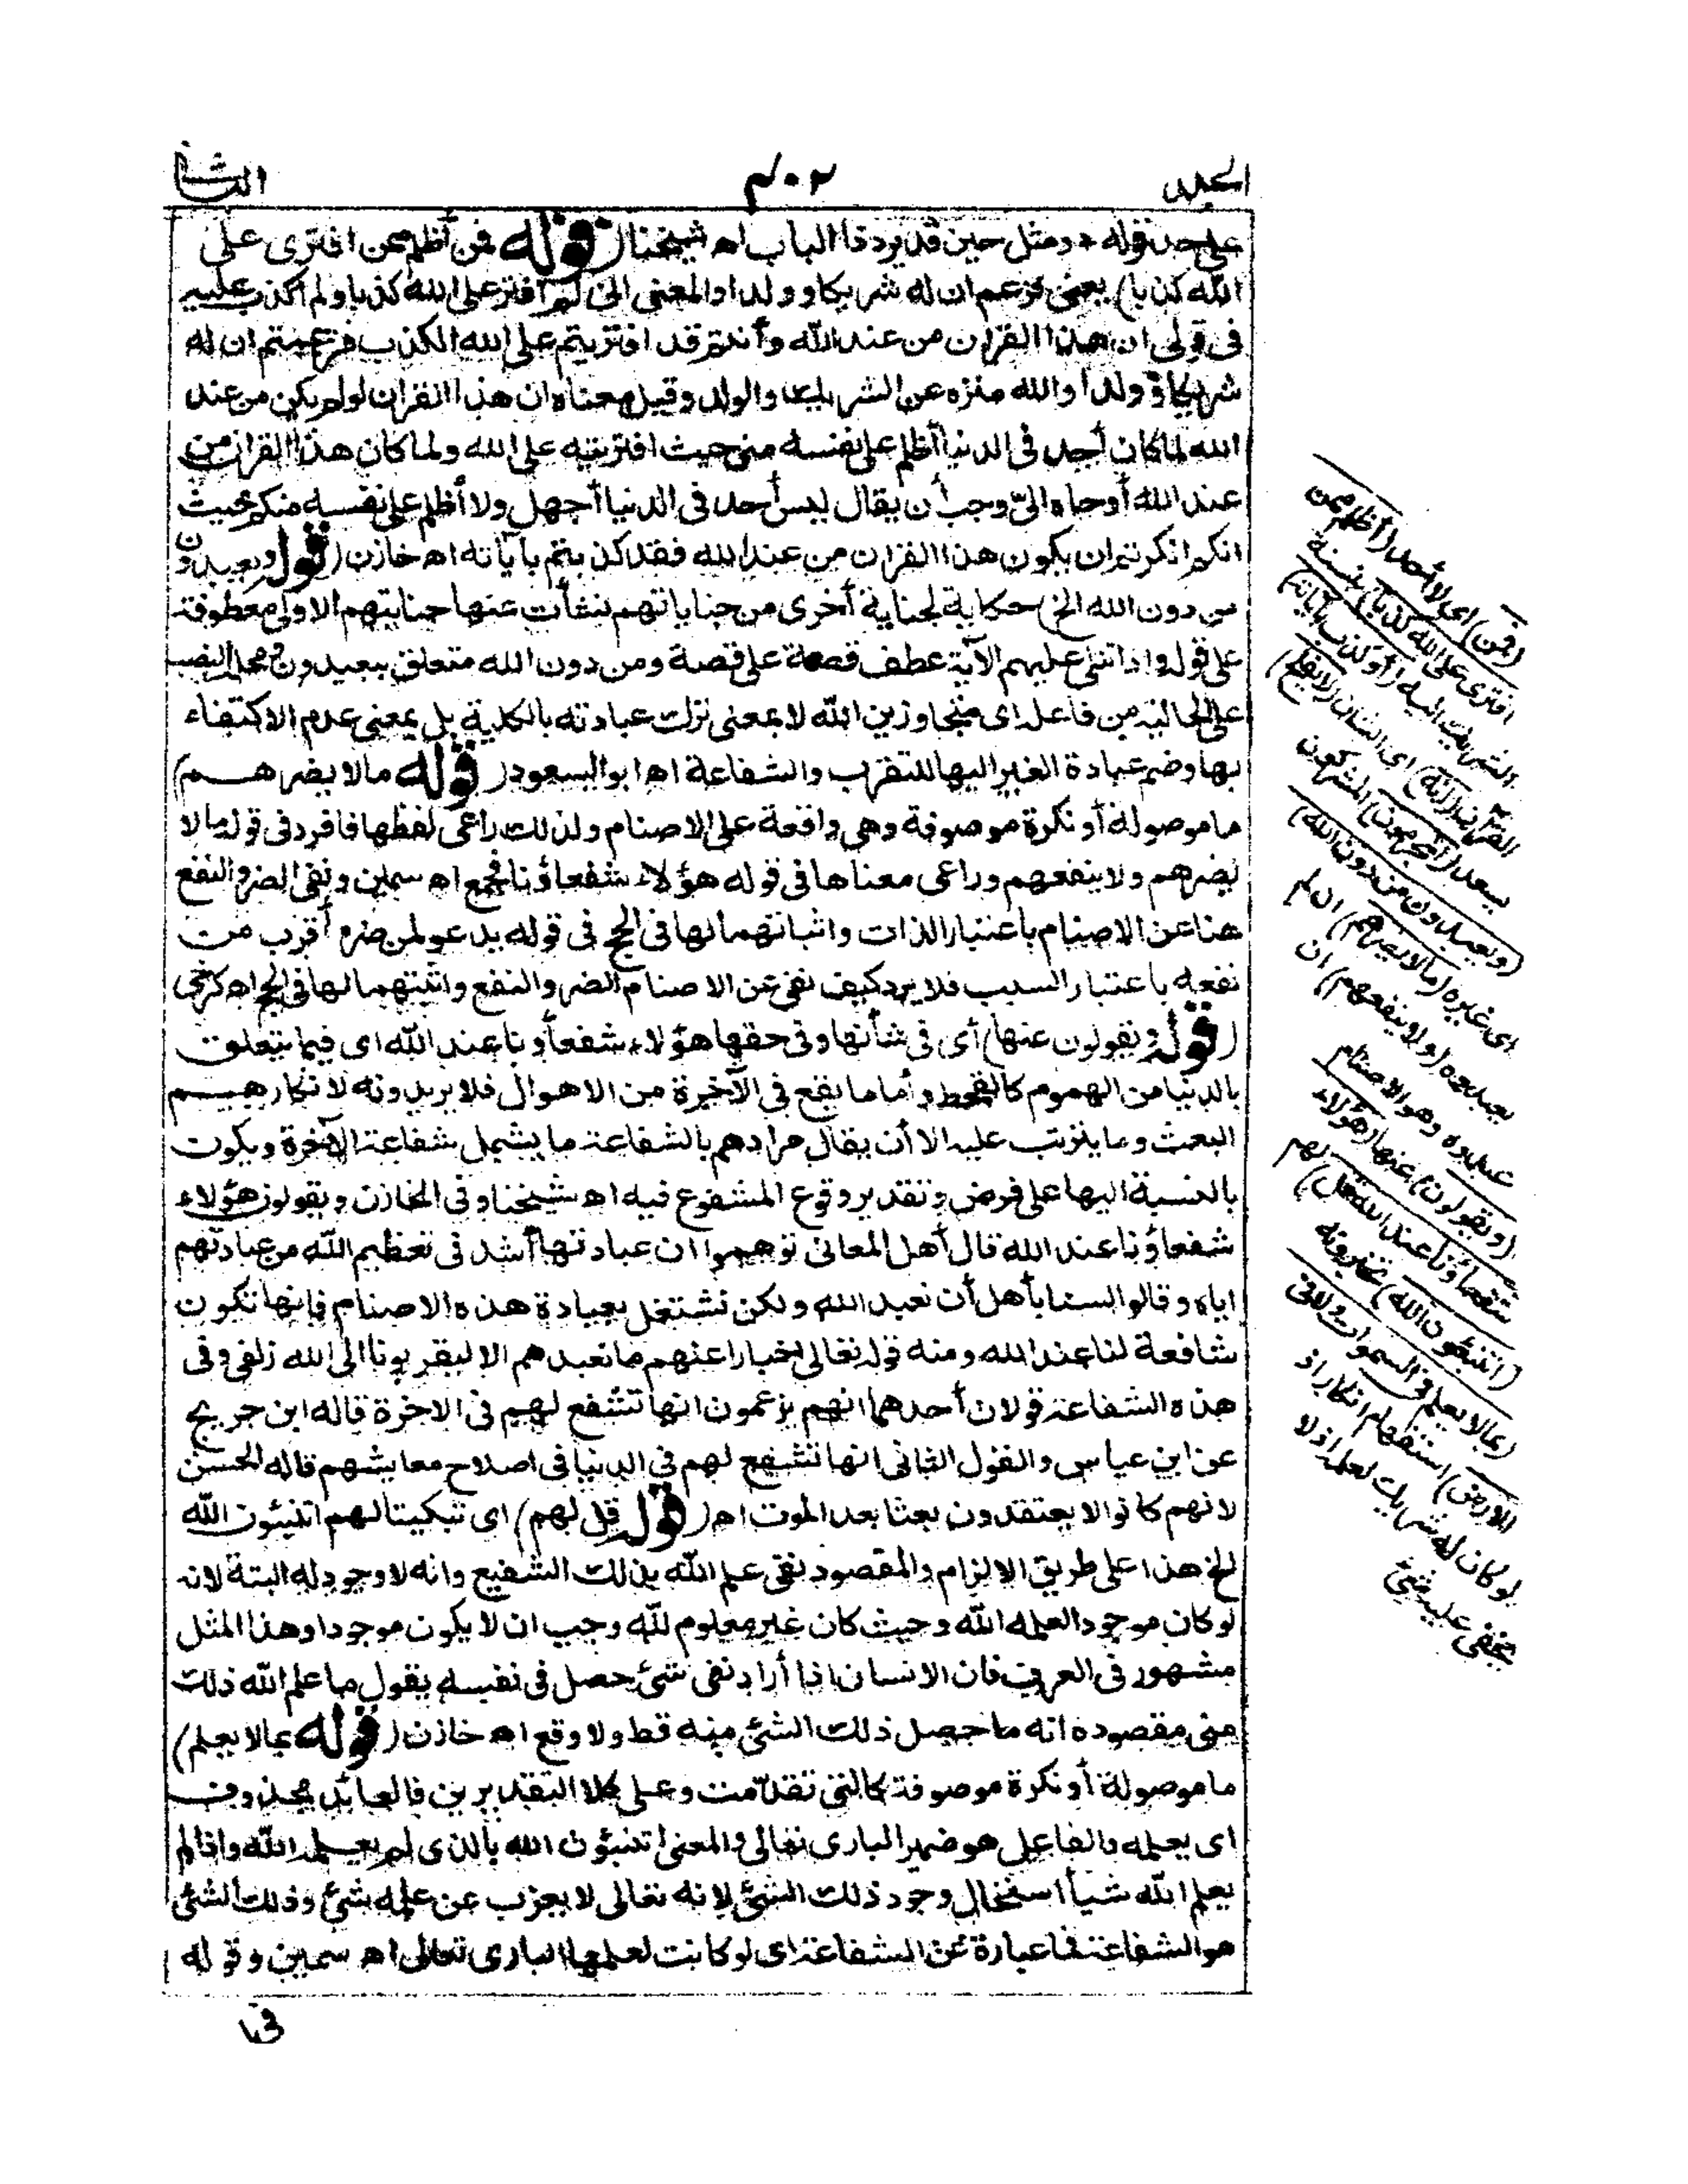 الجلد
٤٠٢
الثانى
على حد قوله * ومثل حين قد يرد ذا الباب اه شيخنا (قوله فمن أظلم ممن افترى على
الله كذبا) يعنى فزعم ان له شريكا وولدا والمعنى انى لم أفتر على الله كذبا ولم اكذب عليه
فى قولى ان هذا القران من عند الله وأنتم قد افتريتم على الله الكذب فزعمتم ان له
شريكا وولدا والله منزه عن الشريك والولد وقيل معناه ان هذا القران لو لم يكن من عند
الله لما كان أحد فى الدنيا أظلم على نفسه منى حيث افتريته على الله ولما كان هذا القران من
عند الله أوحاه الىّ وجب أن يقال ليس أحد فى الدنيا أجهل ولا أظلم على نفسه منكم حيث
انكم انكرتم ان يكون هذا القران من عند الله فقد كذبتم بآياته اه خازن (قوله ويعبدون
من دون الله الخ) حكاية لجناية أخرى من جناياتهم نشأت عنها جنايتهم الاولى معطوفة
على قوله واذا تتلى عليهم الآية عطف قصة على قصة ومن دون الله متعلق بيعبدون ومحله النصب
على الحالية من فاعله اى متجاوزين الله لا بمعنى ترك عبادته بالكلية بل بمعنى عدم الاكتفاء
بها وضم عبادة الغير اليها للتقرب والشفاعة اه ابو السعود (قوله مالا يضرهم)
ما موصولة أو نكرة موصوفة وهى واقعة على الاصنام ولذلك راعى لفظها فافرد فى قوله مالا
يضرهم ولا ينفعهم وراعى معناها فى قوله هؤلاء شفعاؤنا فجمع اه سمين ونفى الضر والنفع
هنا عن الاصنام باعتبار الذات واثباتهما لها فى الحج فى قوله يدعو لمن ضره أقرب من
نفعه باعتبار السبب فلا يرد كيف نفى عن الاصنام الضر والنفع واثبتهما لها فى الحج اه كرخى
(قوله ويقولون عنها) أى فى شأنها وفى حقها هؤلاء شفعاؤنا عند الله اى فيما يتعلق
بالدنيا من الهموم كالقحط وأما ما يقع فى الآخرة من الاهوال فلا يريدونه لانكارهم
البعث وما يترتب عليه الا أن يقال مرادهم بالشفاعة ما يشمل شفاعة الآخرة ويكون
بالنسبة اليها على فرض وتقدير وقوع المشفوع فيه اه شيخنا وفى الخازن ويقولون هؤلاء
شفعاؤنا عند الله قال أهل المعانى توهموا ان عبادتها أشد فى تعظيم الله من عبادتهم
اياه وقالوا لسنا بأهل أن نعبد الله ولكن نشتغل بعبادة هذه الاصنام فانها تكون
شافعة لنا عند الله ومنه قوله تعالى اخبارا عنهم ما نعبدهم الا ليقربونا الى الله زلفى وفى
هذه الشفاعة قولان أحدهما انهم يزعمون انها تشفع لهم فى الاخرة قاله ابن جريج
عن ابن عباس والقول الثانى انها تشفع لهم فى الدنيا فى اصلاح معايشهم قاله الحسن
لانهم كانوا لا يعتقدون بعثا بعد الموت اه (قوله قل لهم) اى تبكيتا لهم اتنبئون الله
الخ هذا على طريق الالزام والمقصود نفى علم الله بذلك الشفيع وانه لا وجود له البتة لانه
لو كان موجودا لعلمه الله وحيث كان غير معلوم لله وجب ان لا يكون موجودا وهذا المثل
مشهور فى العرب فان الانسان اذا أراد نفى شئ حصل فى نفسه يقول ما علم الله ذلك
منى مقصوده انه ما حصل ذلك الشئ منه قط ولا وقع اه خازن (قوله بما لا يعلم)
ما موصولة أو نكرة موصوفة كالتى تقدّمت وعلى كلا التقديرين فالعائد محذوف
اى يعلمه والفاعل هو ضمير البارى تعالى والمعنى اتنبؤن الله بالذى لم يعلمه الله واذا لم
يعلم الله شيأ استحال وجود ذلك الشئ لانه تعالى لا يعزب عن علمه شئ وذلك الشئ
هو الشفاعة فما عبارة عن الشفاعة اى لو كانت لعلمها البارى تعالى اه سمين وقوله
(فمن) اى لا أحد (أظلم ممن
افترى على الله كذبا) بنسبة
الشريك اليه (أو كذب بآياته)
القرآن (انه) اى الشان (لا يفلح)
يسعد (المجرمون) المشركون
(ويعبدون من دون الله)
اى غيره (مالا يضرهم) ان لم
يعبدوه (ولا ينفعهم) ان
عبدوه وهو الاصنام
(ويقولون) عنها (هؤلاء
شفعاؤنا عند الله قل) لهم
(اتنبئون الله) تخبرونه
(بما لا يعلم فى السموات ولا فى
الارض) استفهام انكار اذ
لو كان له شريك لعلمه اذ لا
يخفى عليه شئ
فى ما